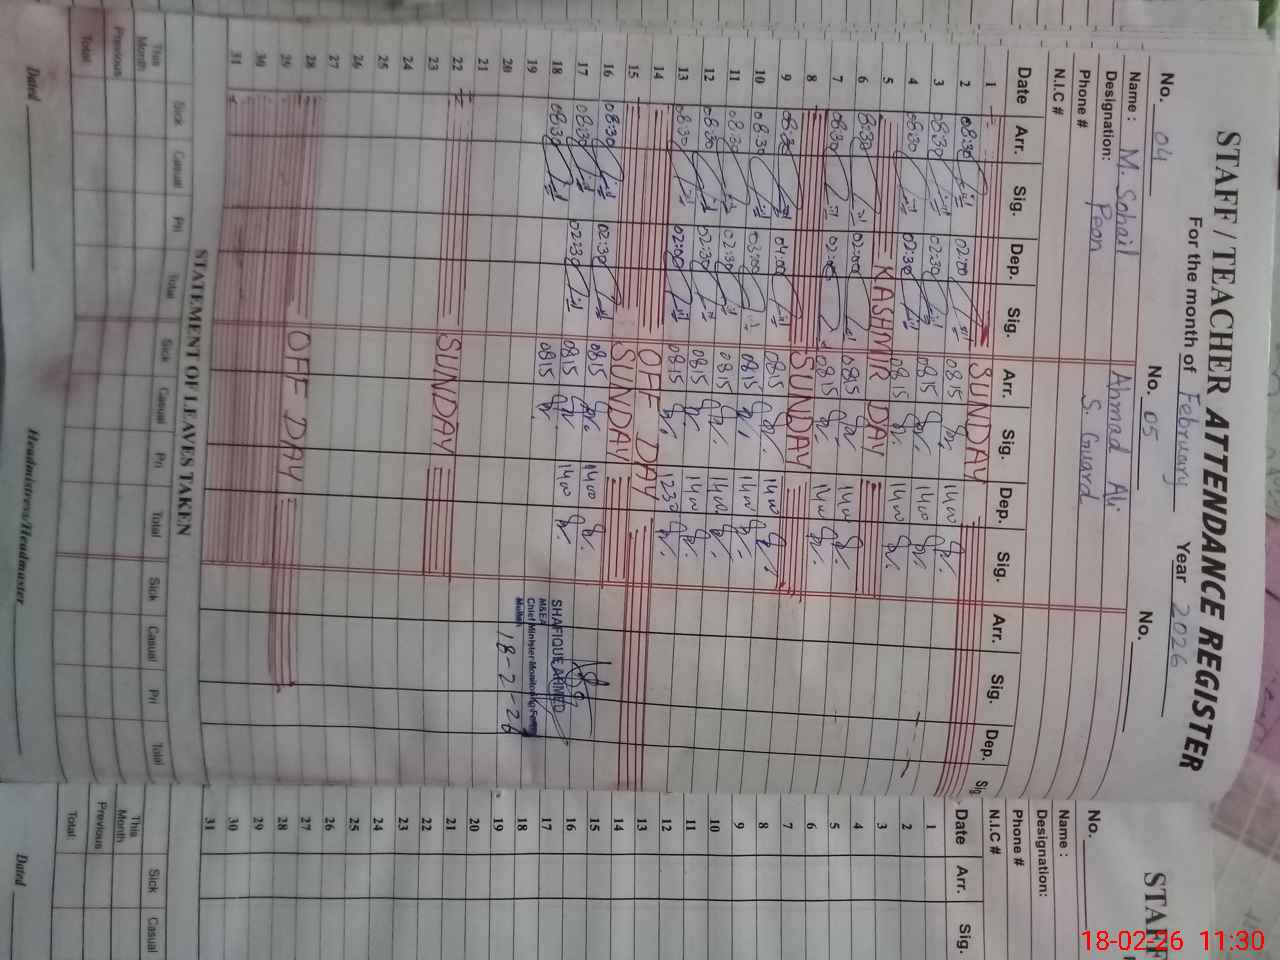 STAFF / TEACHER ATTENDANCE REGISTER
For the month of February Year 2026
No. 04 No. 05 No.
Name : M. Sohail Ahmad Ali
Designation: Peon S. Guard
Phone #
N.I.C #
Date Arr. Sig. Dep. Sig. Arr. Sig. Dep. Sig. Arr. Sig. Dep. Sig.
1 SUNDAY
2 08:30 02:00 0815 1400
3 08:30 02:30 0815 1400
4 08:30 02:30 0815 1400
5 KASHMIR DAY
6 8:30 02:00 0815 1400
7 08:30 02:00 0815 1400
8 SUNDAY
9 08:30 04:00 0815 1400
10 08:30 03:00 0815 1400
11 08:30 02:30 0815 1400
12 08:30 02:30 0815 1400
13 08:30 02:00 0815 1230
14 OFF DAY
15 SUNDAY
16 08:30 02:30 0815 1400
17 08:30 02:30 0815 1400
18 08:30 0815
SHAFIQUE AHMED
M&EA
Chief Minister Monitoring Force
Multan
18-2-26
19
20
21
22 SUNDAY
23
24
25
26
27
28 OFF DAY
29
30
31
STATEMENT OF LEAVES TAKEN
Sick Casual Pri Total Sick Casual Pri Total Sick Casual Pri Total
This Month
Previous
Total
Dated Headmistress/Headmaster
STAFF
No.
Name :
Designation:
Phone #
N.I.C #
Date Arr. Sig.
1
2
3
4
5
6
7
8
9
10
11
12
13
14
15
16
17
18
19
20
21
22
23
24
25
26
27
28
29
30
31
Sick Casual
This Month
Previous
Total
Dated
18-02-26 11:30